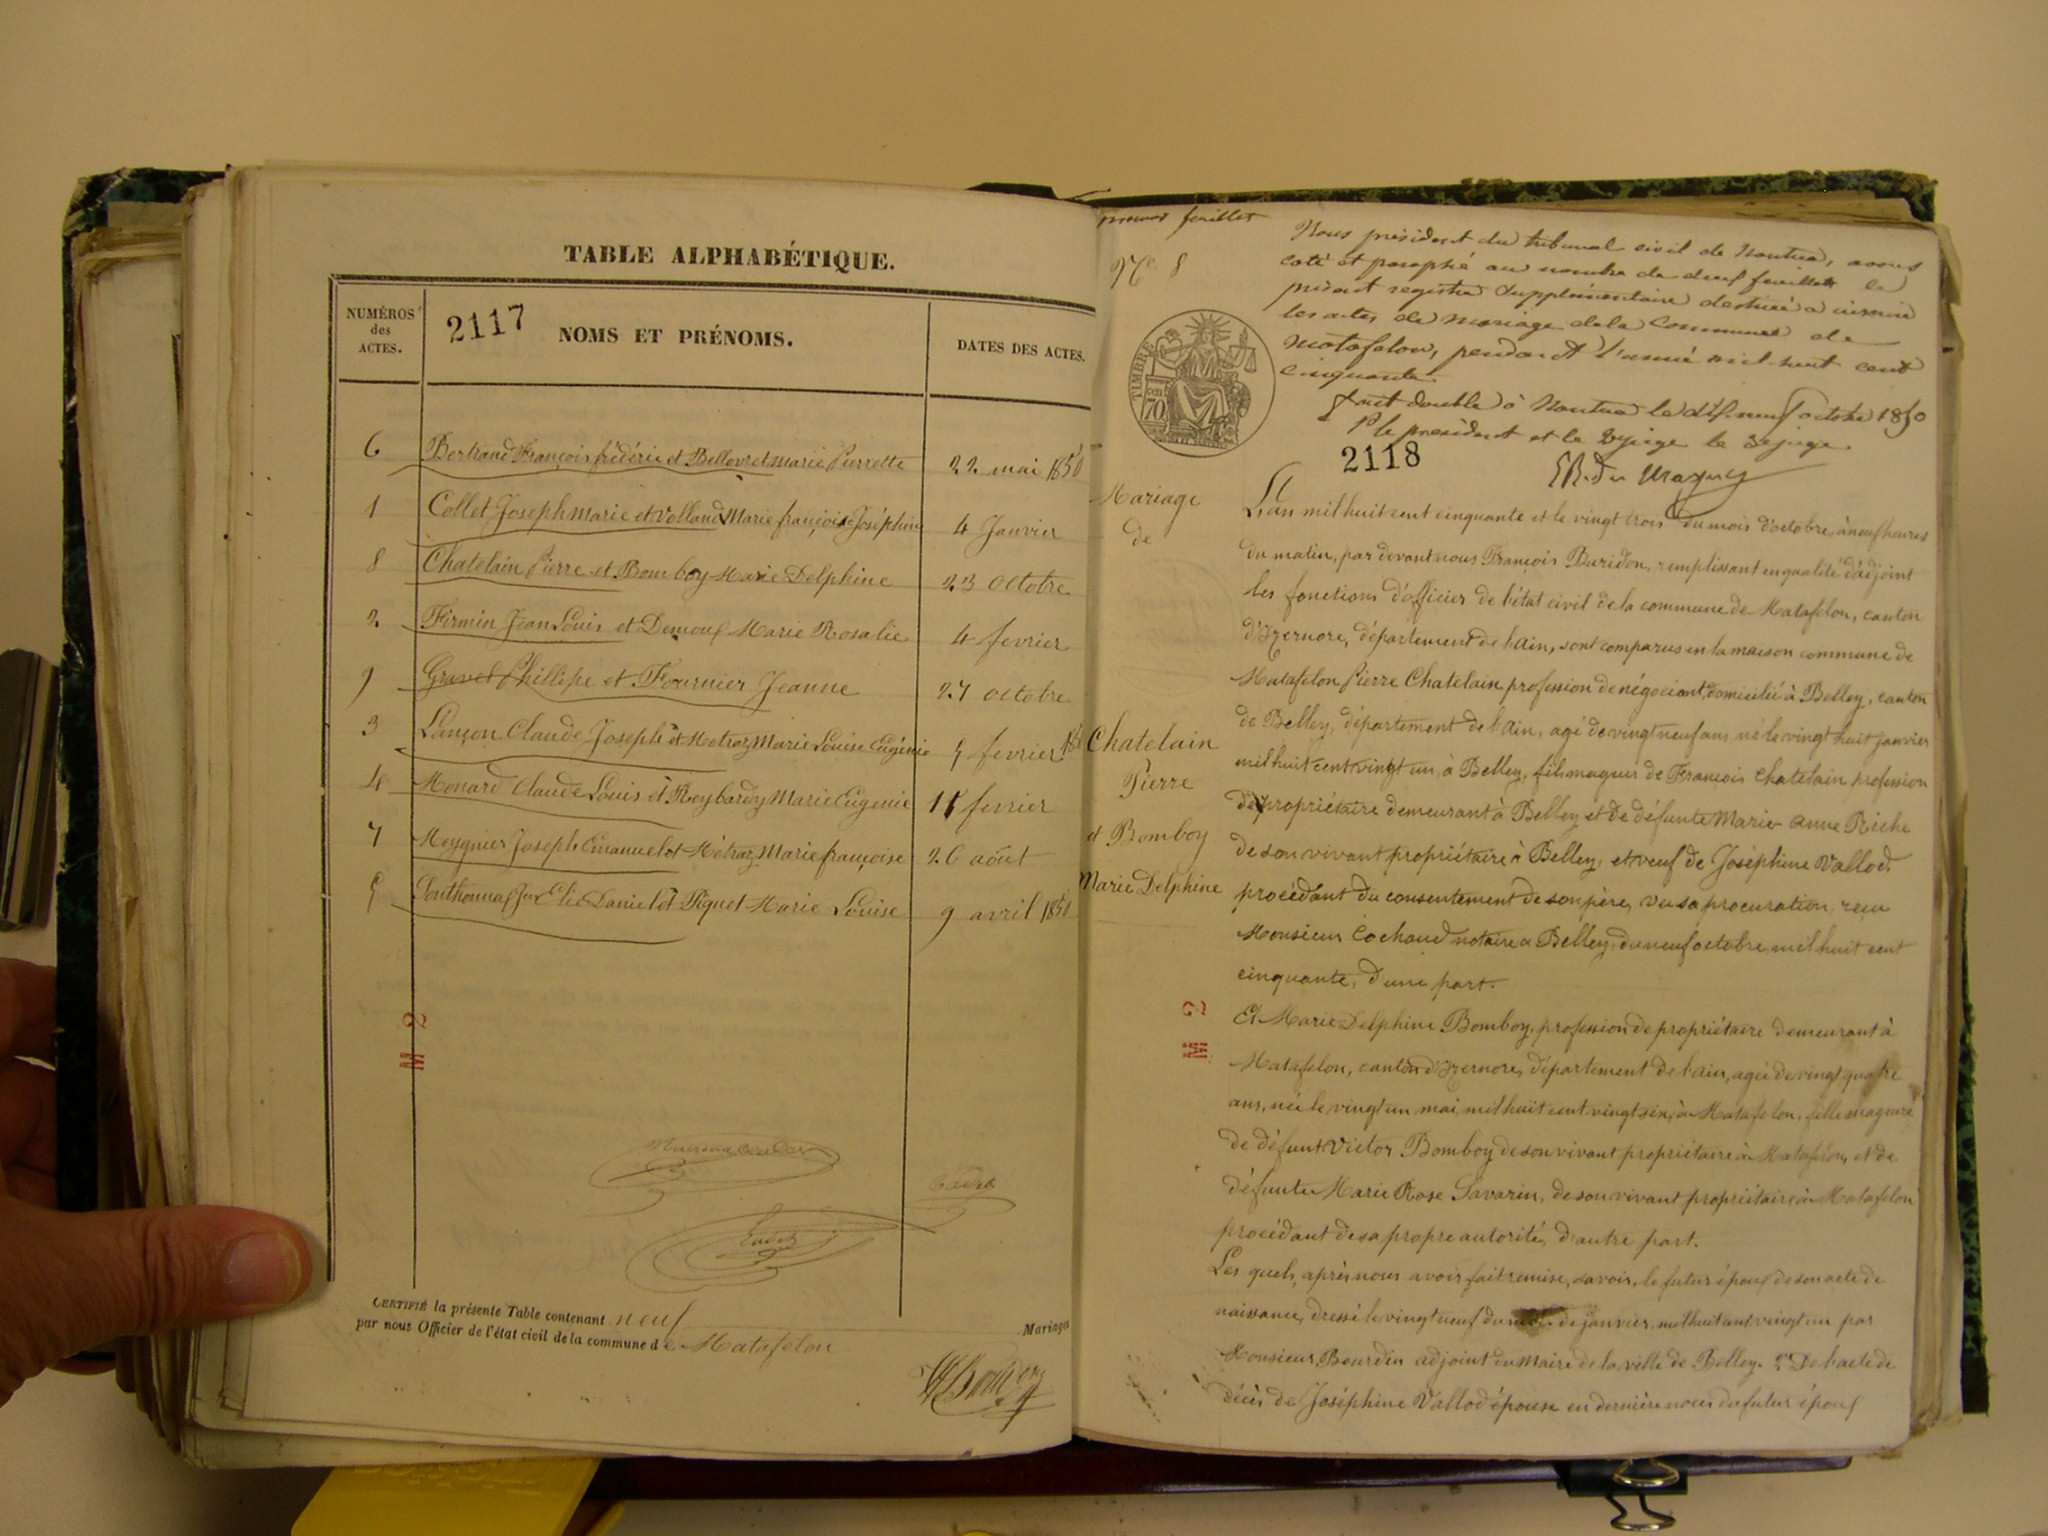 TABLE ALPHABÉTIQUE.
NUMÉROS des ACTES.
2117
NOMS ET PRÉNOMS.
DATES DES ACTES.
6 Bertrand François frédéric et Bellevret marie Pierrette 22 mai 1850
1 Collet Joseph marie et Volland Marie françoise Joséphine 4 Janvier
8 Chatelain Pierre et Bomboy Marie Delphine 23 octobre
2 Firmin Jean Louis et Demouf Marie Rosalie 4 fevrier
9 Gravet Phillipe et Fournier Jeanne 27 octobre
3 Lançon Claude Joseph et Metraz Marie Louise Eugénie 5 fevrier
4 Monard Claude Louis et Reybardy Marie Eugenie 11 fevrier
7 Meygnier Joseph Emanuel et Métraz Marie françoise 26 août
5 Ponthonnas Elie Daniel et Piquet Marie Louise 9 avril 1850
M 2
CERTIFIÉ la présente Table contenant neuf Mariages
par nous Officier de l'état civil de la commune de Matafelon
feuillet
N° 8
Nous président du tribunal civil de Nantua, avons
coté et paraphé au nombre de deux feuillets le
présent registre supplémentaire destiné a inscrire
les actes de mariage de la Commune de
Matafelon, pendant l'année mil huit cent
cinquante
fait double à Nantua le dix neuf octobre 1850
Ple président et le 2e juge le 3e juge
TIMBRE
70
2118
Mariage
de
Chatelain
Pierre
et Bomboy
Marie Delphine
L'an mil huit cent cinquante et le vingt trois du mois d'octobre, à neuf heures
du matin, par devant nous François Baridon, remplissant en qualité d'adjoint
les fonctions d'officier de l'état civil de la commune de Matafelon, canton
d'Izernore, département de l'ain, sont comparus en la maison commune de
Matafelon Pierre Chatelain profession de négociant, domicilié à Belley, canton
de Belley, département de l'ain, agé de vingt neuf ans né le vingt huit janvier
mil huit cent vingt un, à Belley, fils majeur de François Chatelain profession
de propriétaire demeurant à Belley et de défunte Marie anne Riche
de son vivant propriétaire à Belley, et veuf de Joséphine Vallod.
procédant du consentement de son père, vu sa procuration, reçu
Monsieur Cochaud notaire a Belley, du neuf octobre mil huit cent
cinquante, d'une part.
Et Marie Delphine Bomboy, profession de propriétaire demeurant à
Matafelon, canton d'Izernore, département de l'ain, agée de vingt quatre
ans, née le vingt un mai mil huit cent vingt six, à Matafelon, fille majeure
de défunt Victor Bomboy de son vivant propriétaire à Matafelon, et de
défunte Marie Rose Savarin, de son vivant propriétaire à Matafelon
procédant de sa propre autorité, d'autre part.
Les quels, après nous avoir fait remise, savoir, le futur époux de son acte de
naissance, dressé le vingt neuf du mois de janvier mil huit cent vingt un par
Monsieur Bourdin adjoint du Maire de la ville de Belley. 2° De l'acte de
décès de Joséphine Vallod épouse en dernière noces du futur époux
M 2